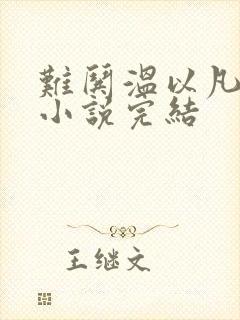 難鬨溫以凡
小說完結
王继文